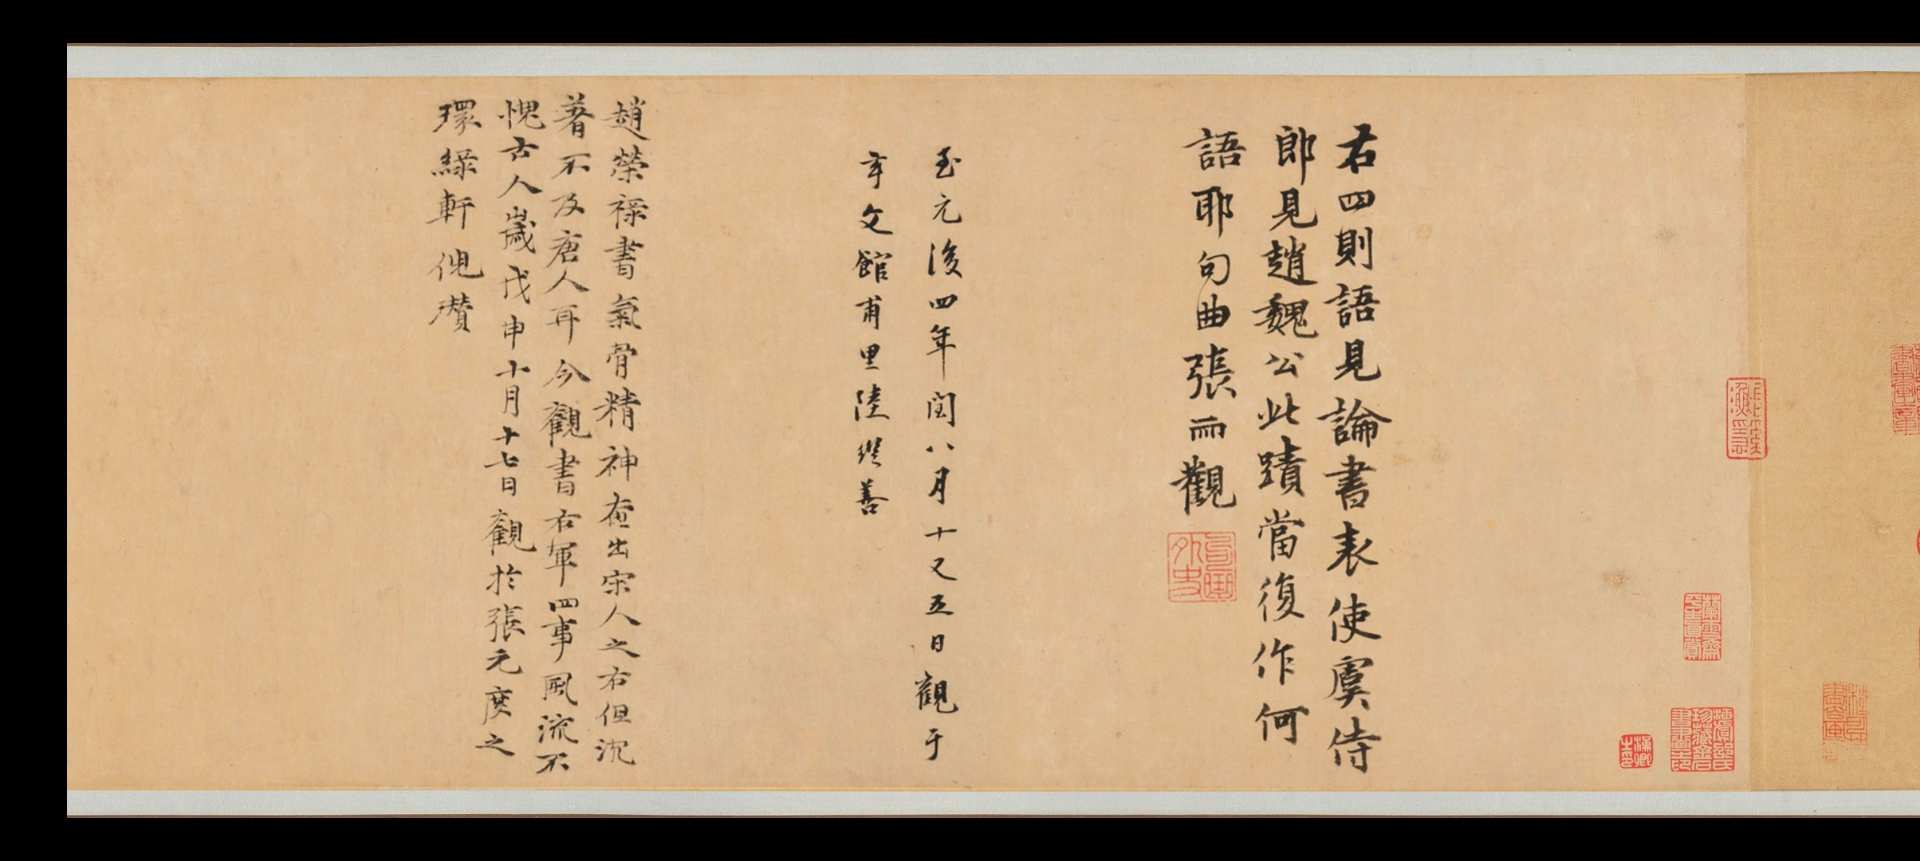 右四則語見論書表使虞侍
郎見趙魏公此蹟當復作何
語耶句曲張雨觀
至元後四年閏八月十又五日觀于
玄文館甫里陸繼善
趙榮祿書氣骨精神在出宋人之右但沉
著不及唐人耳今觀書右軍四事風流不
愧古人歲戊申十月十七日觀於張元度之
環綠軒倪瓚
句曲外史